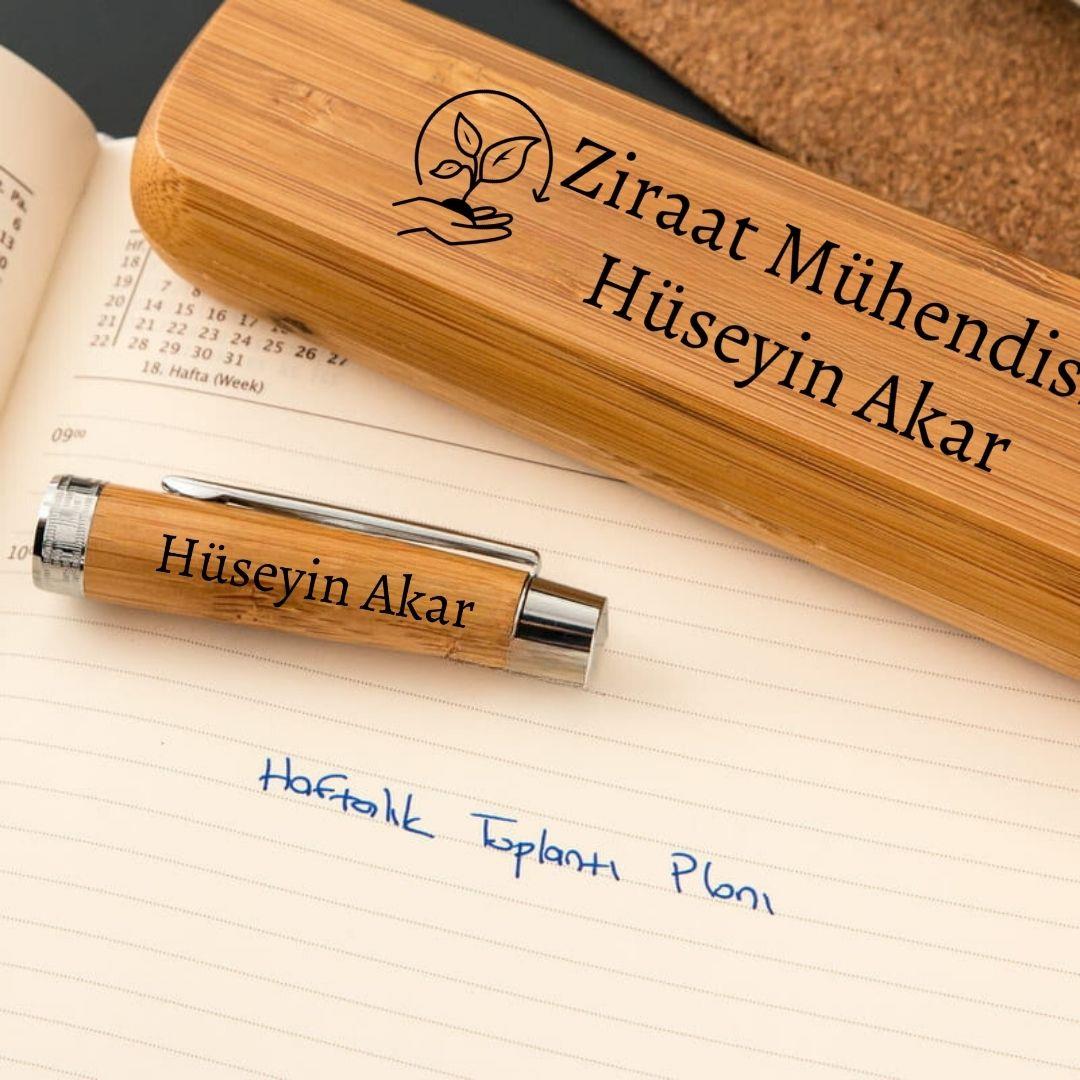 Ziraat Mühendis
Hüseyin Akar
Pa.
6
13
Hf.
18
19 7 8
20 14 15 16 17
21 21 22 23 24 25 26 27
22 28 29 30 31
18. Hafta (Week)
09⁰⁰
Hüseyin Akar
10
Haftalık Toplantı Planı